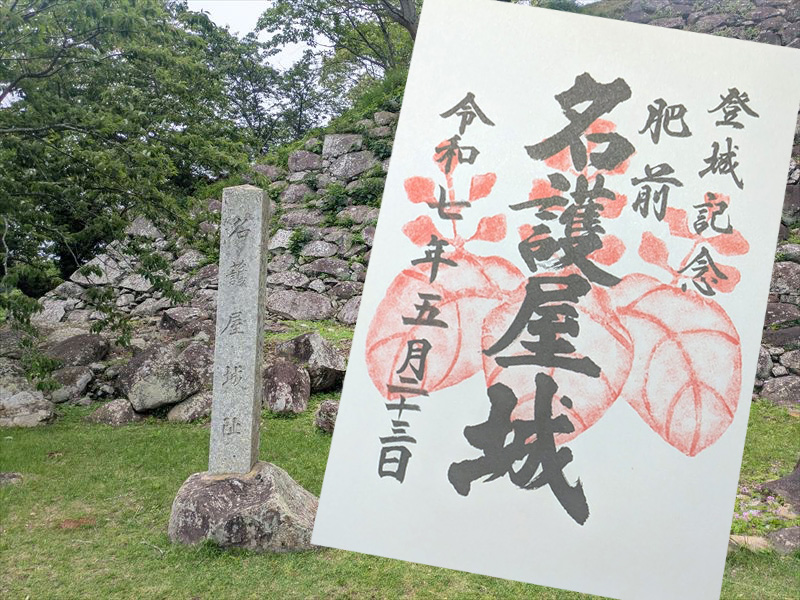 登城記念
肥前
名護屋城
令和七年五月二十三日
名護屋城址